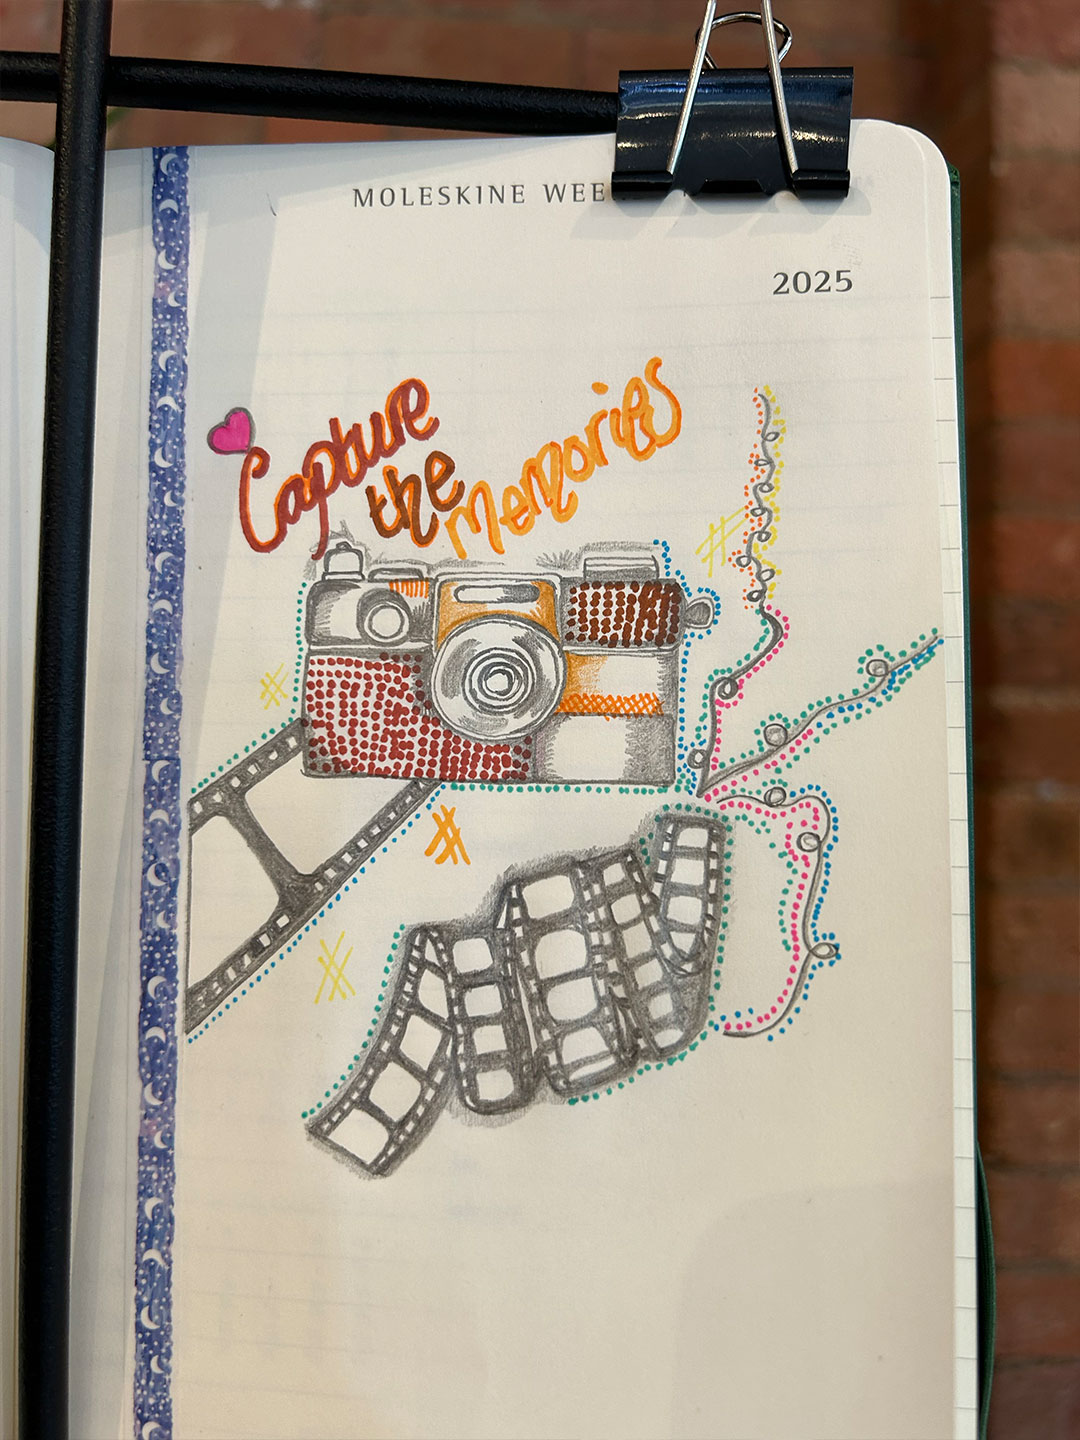 MOLESKINE
2025
Capture
the
memories